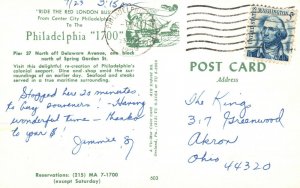 7/23 3:15 pm
"RIDE THE RED LONDON BUS"
From Center City Philadelphia
To The
Philadelphia "1700"
Pier 27 North off Delaware Avenue, one block
north of Spring Garden St.
Visit this delightful re-creation of Philadelphia's
colonial seaport. Dine and shop amid the surroundings
of an earlier day. Seafood and steaks
served in a true maritime surrounding.
Stopped here 30 minutes
to buy souvenirs! - Having
wonderful time - thanks
to your $!
Jimmie
Reservations: (215) MA 7-1700
(except Saturday)
503
POST CARD
Address
The Kings
317 Greenwood
Akron
Ohio
44320